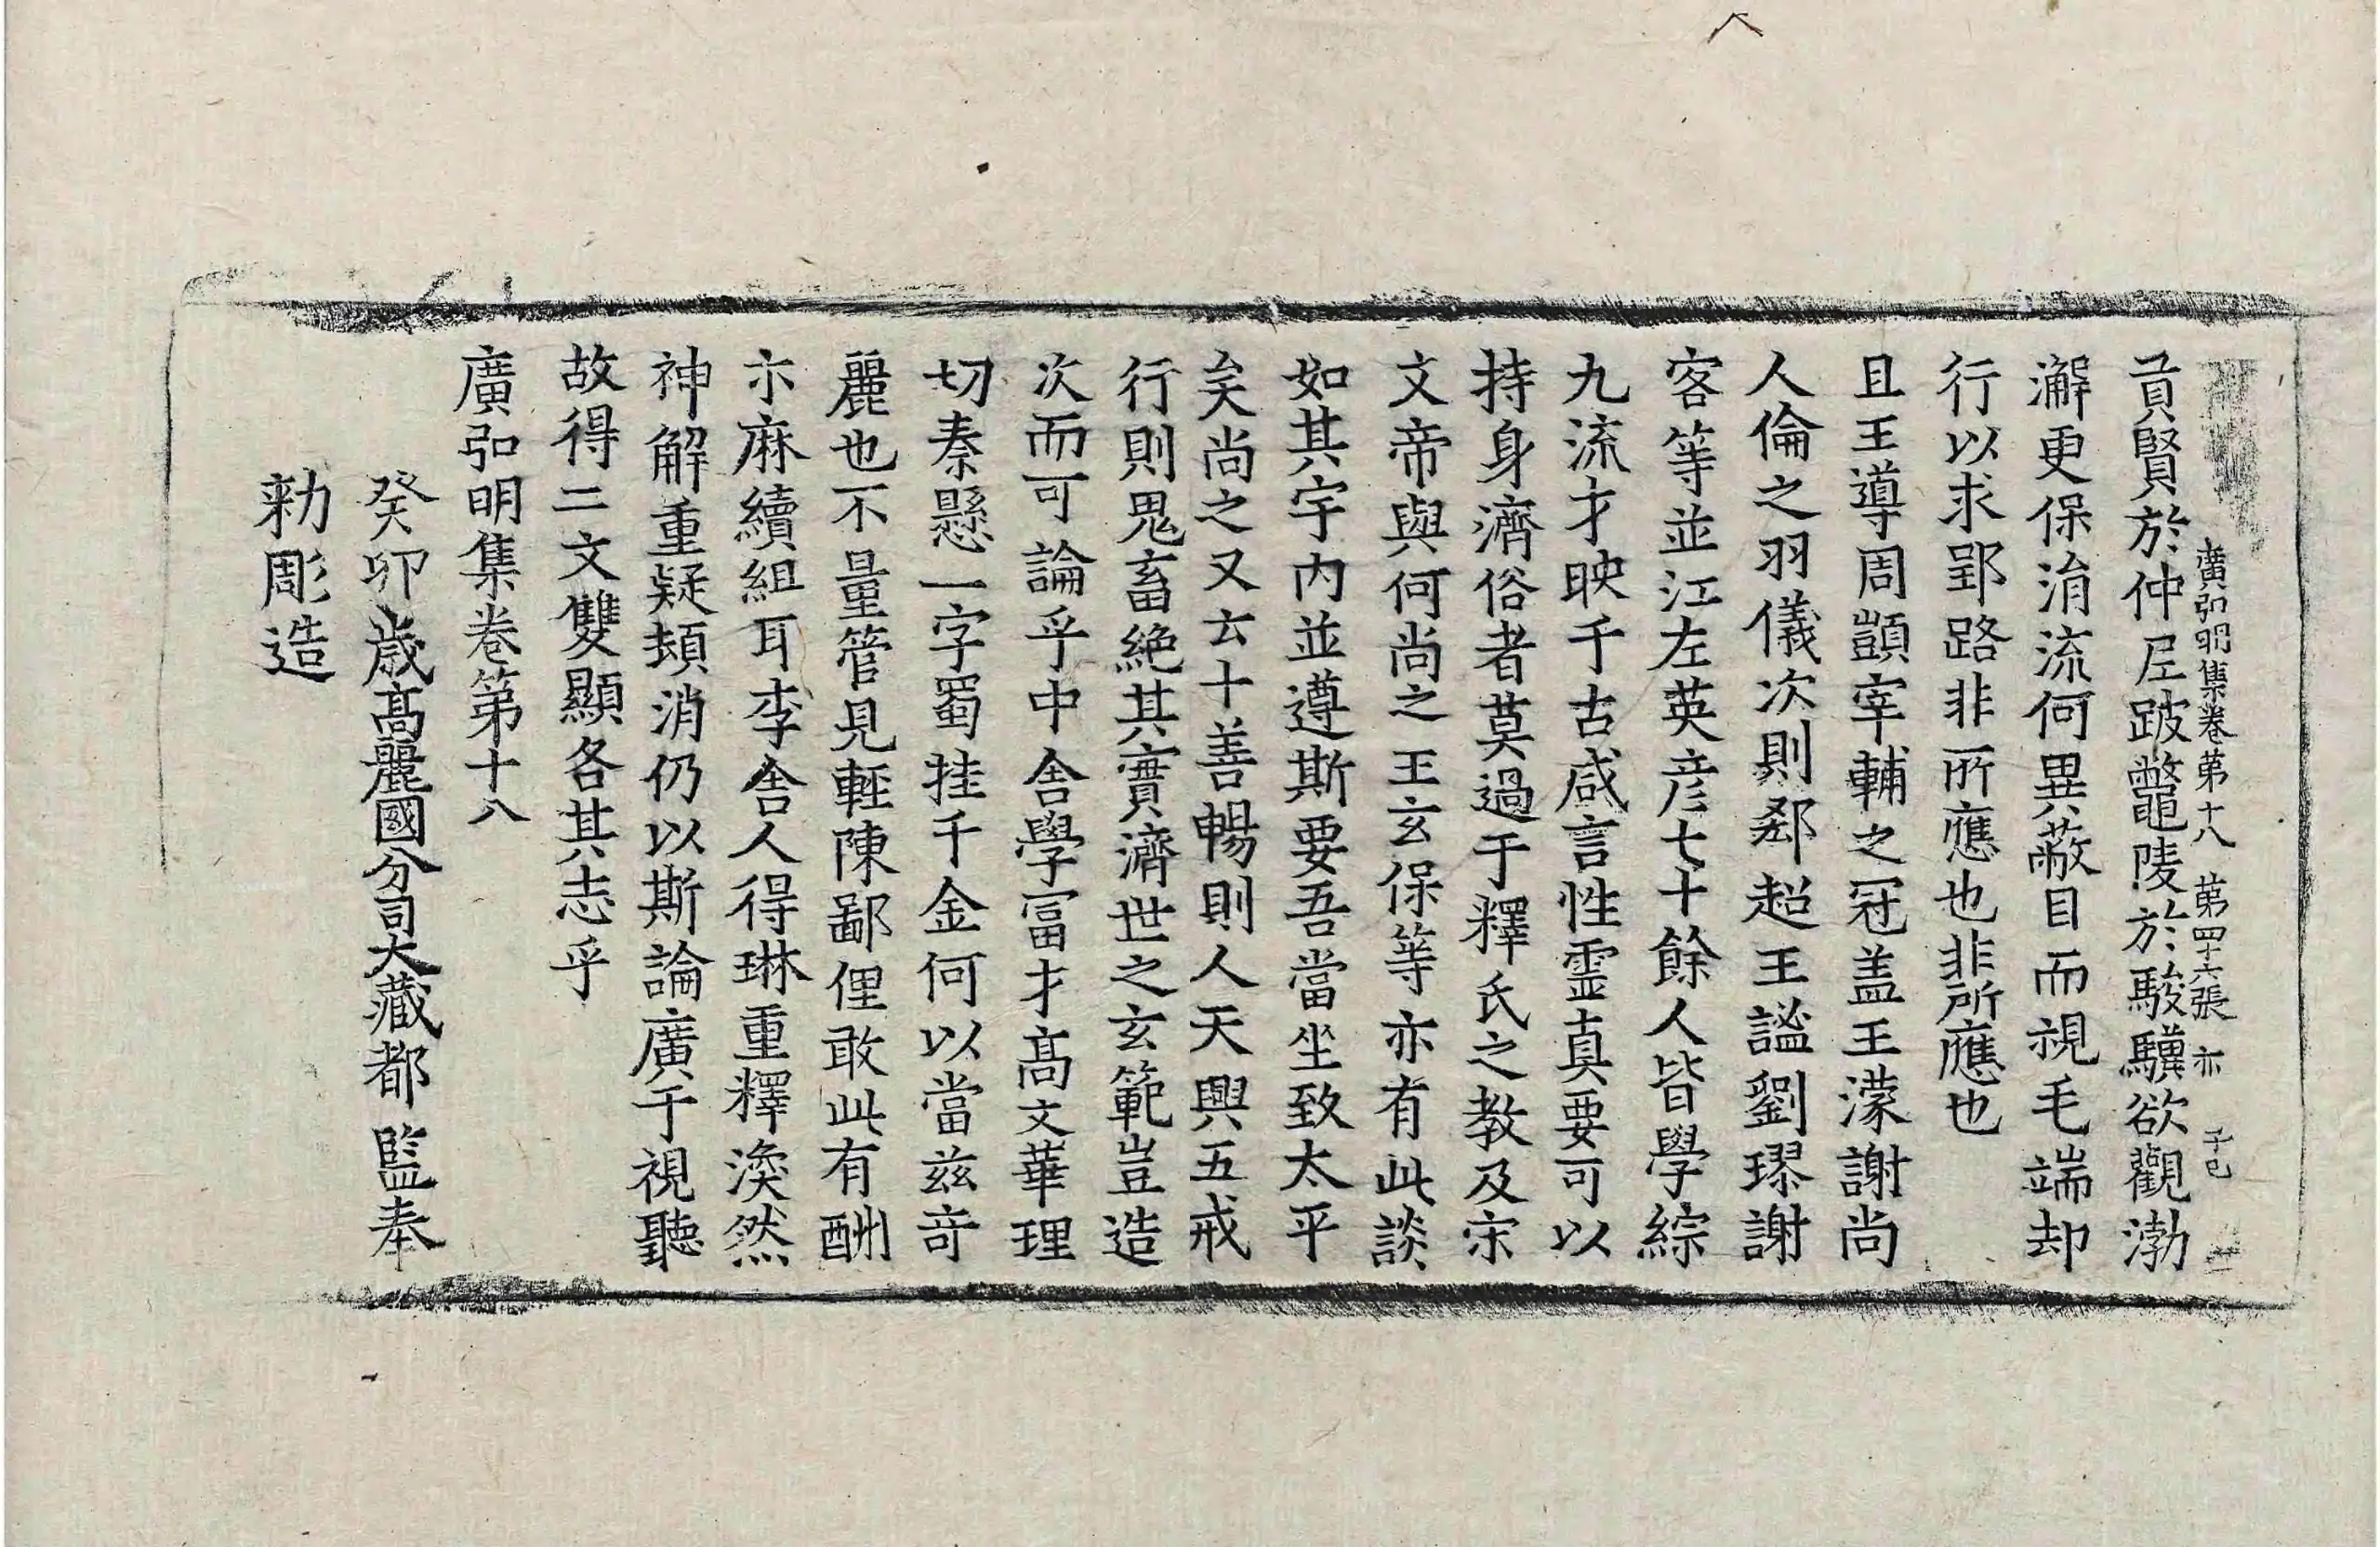 廣弘明集卷第十八 第四十六張 亦
貢賢於仲尼跛鼈陵於駿驥欲觀渤
澥更保涓流何異蔽目而視毛端却
行以求郢路非所應也非所應也
且王導周顗宰輔之冠盖王濛謝尚
人倫之羽儀次則郄超王謐劉璆謝
客等並江左英彦七十餘人皆學綜
九流才映千古咸言性霊真要可以
持身濟俗者莫過于釋氏之教及宋
文帝與何尚之王玄保等亦有此談
如其宇内並遵斯要吾當坐致太平
矣尚之又云十善暢則人天興五戒
行則鬼畜絶其實濟世之玄範豈造
次而可論乎中舎學冨才髙文華理
切秦懸一字蜀挂千金何以當兹竒
麗也不量管見輕陳鄙俚敢此有酬
亦麻續組耳李舎人得琳重釋渙然
神解重疑頓消仍以斯論廣于視聽
故得二文雙顯各其志乎
廣弘明集卷第十八
癸卯歳髙麗國分司大藏都監奉
勑彫造